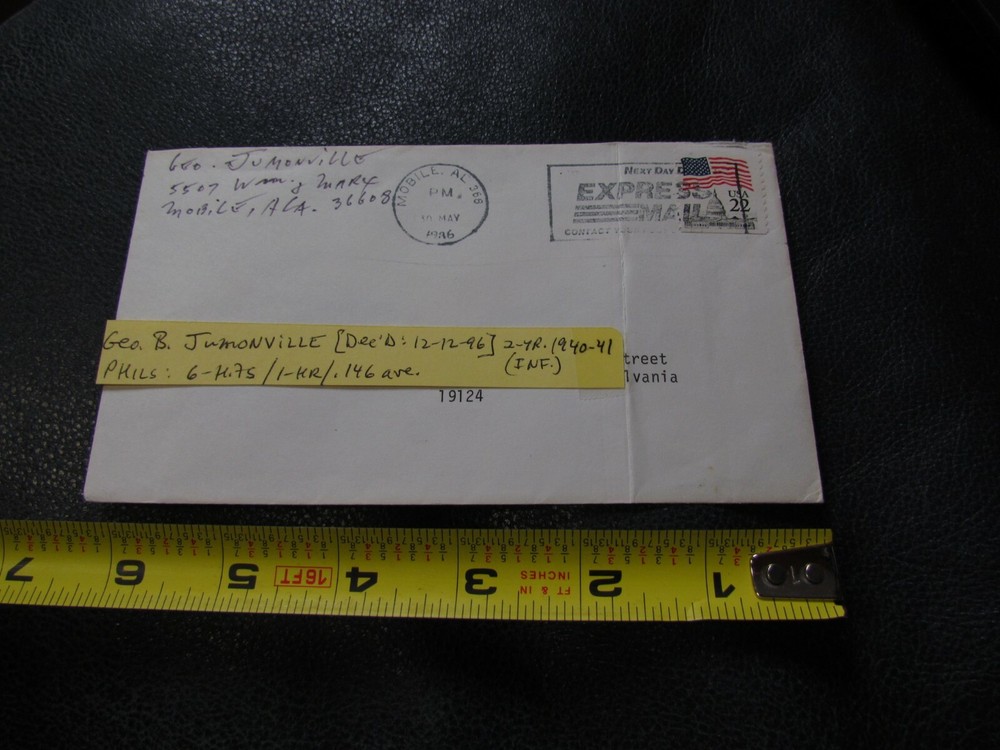 Geo. Jumonville
5507 Wm. & Mary
Mobile, Ala. 36608
MOBILE, AL 366
PM.
10 MAY
1986
NEXT DAY
EXPRESS
MAIL
CONTACT
USA
22
Geo. B. Jumonville [Dec'D: 12-12-96] 2-YR. 1940-41
PHILS: 6-H.75/1-HR/.146 ave. (INF.)
treet
lvania
19124
7 6 5 16FT 4 3 FT & IN INCHES 2 1